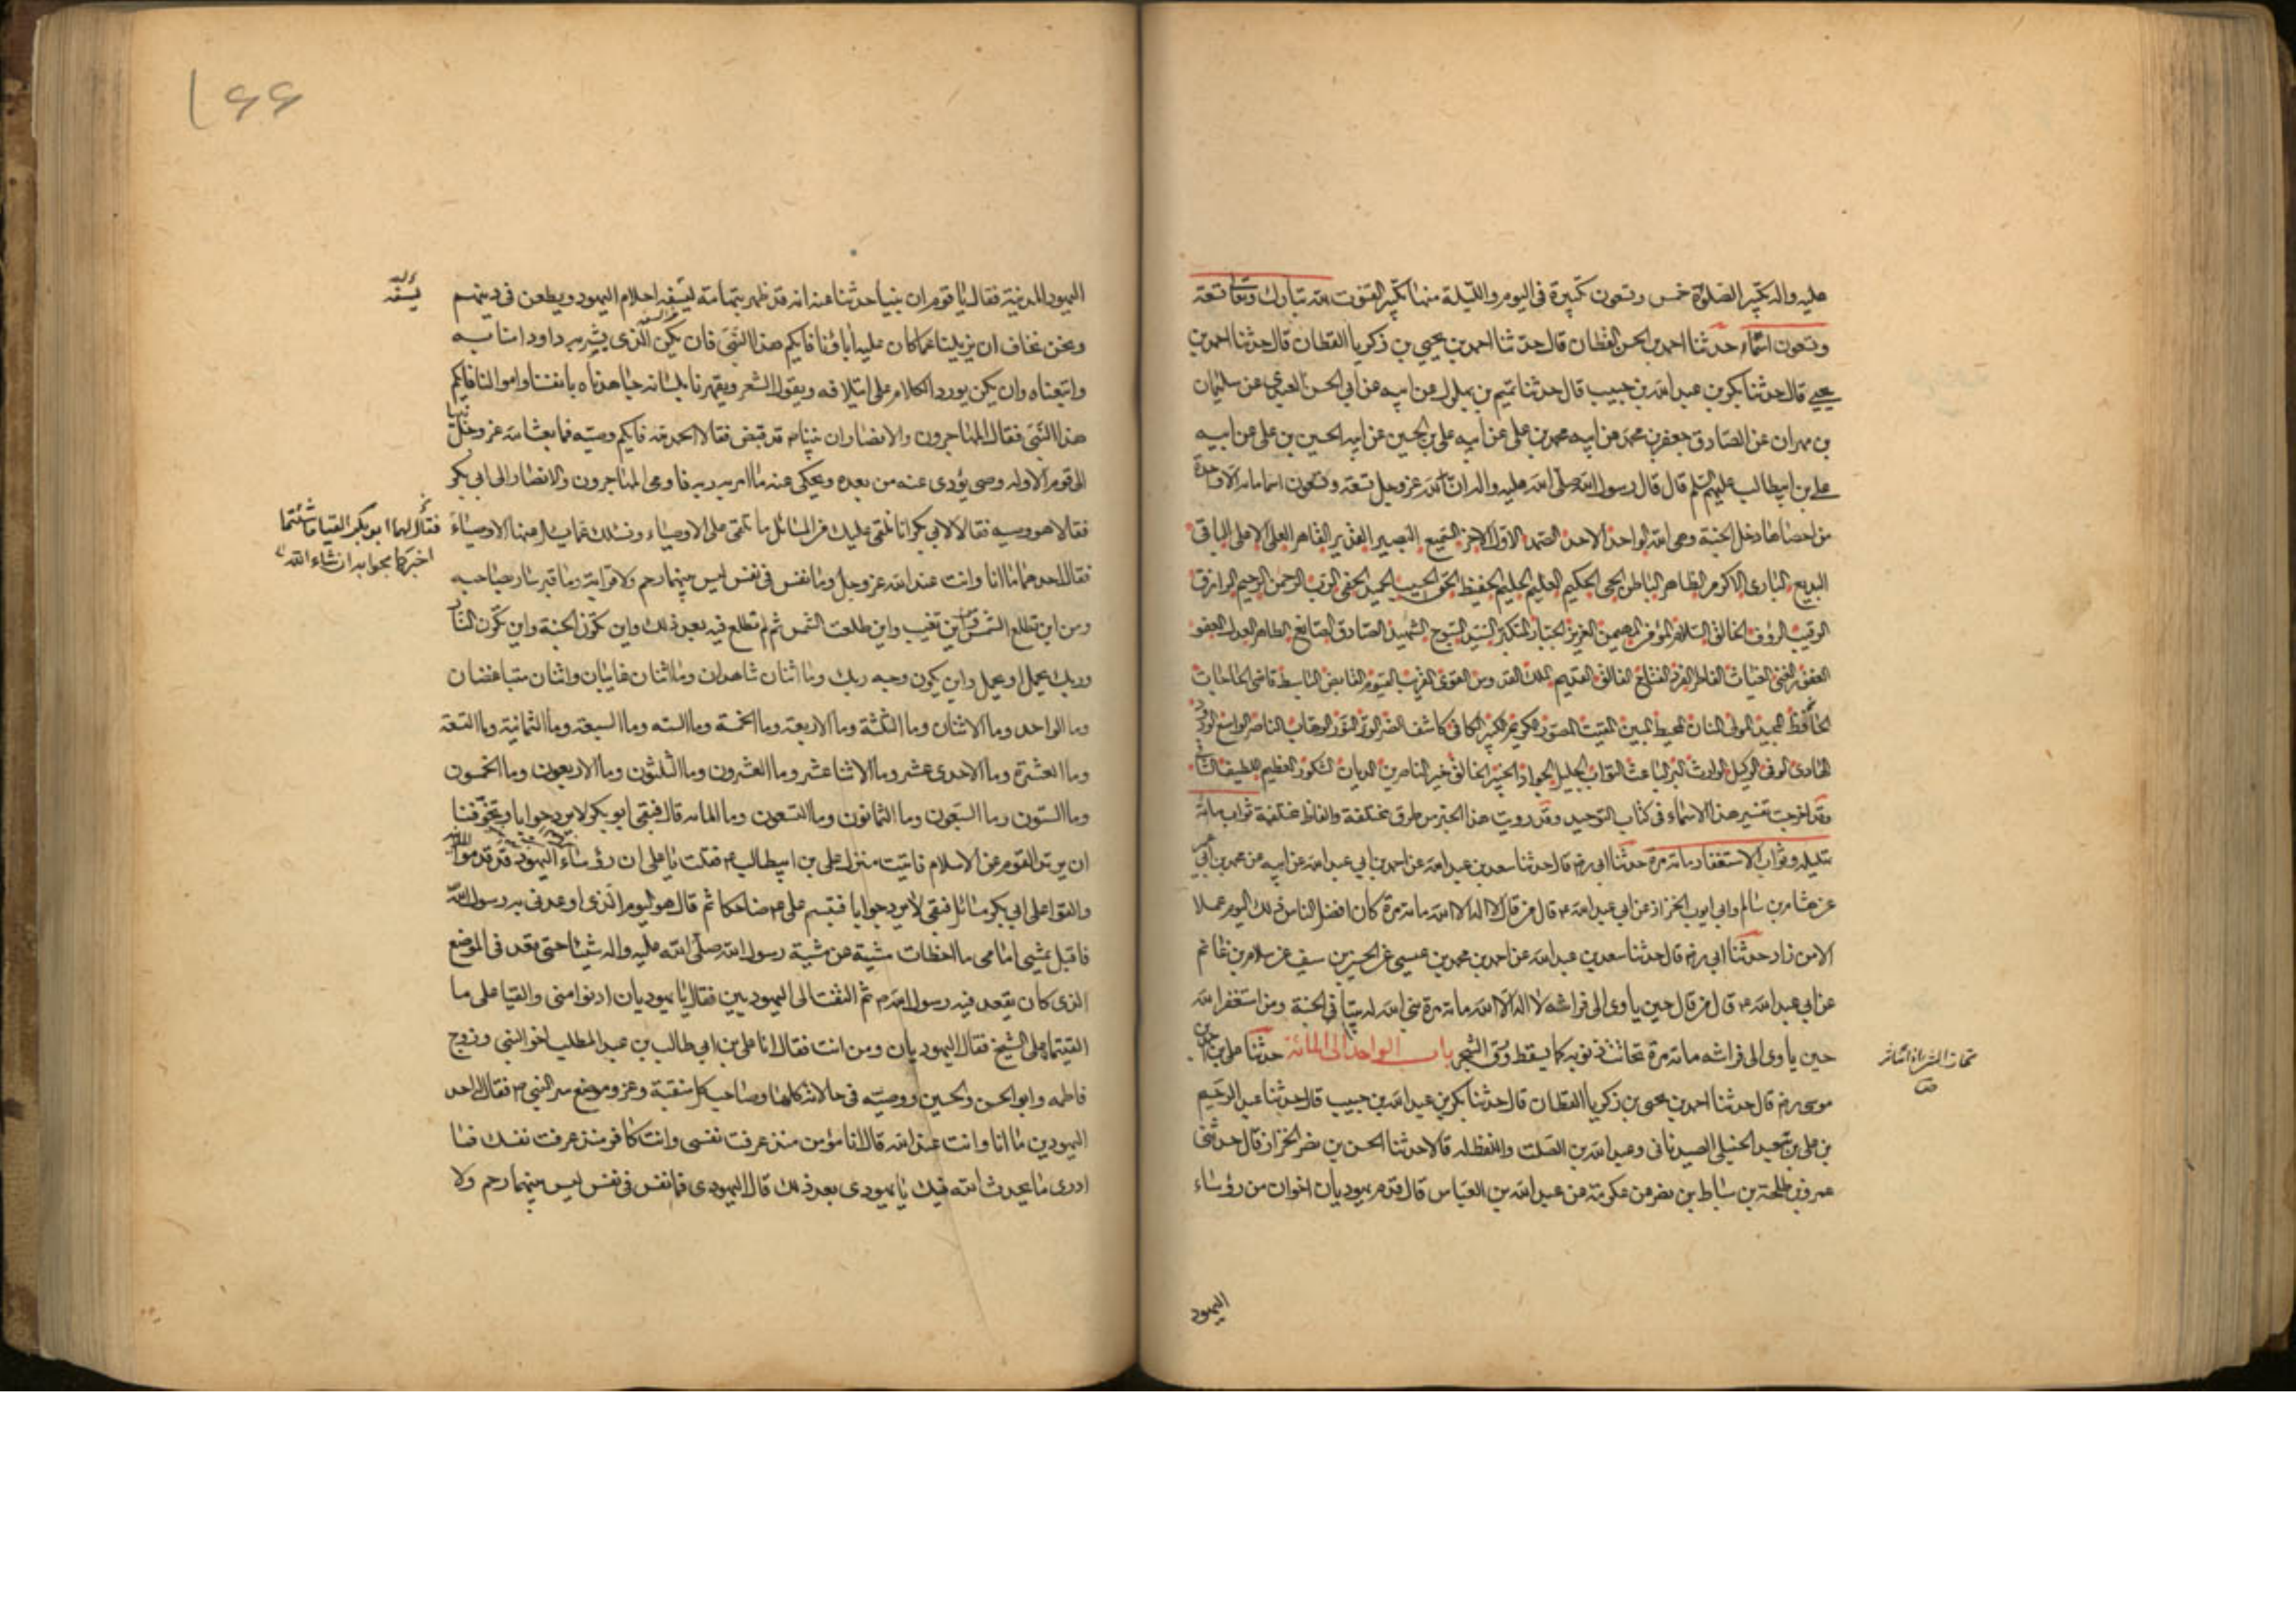 عليه واله تكبير الصلوة خمس وتسعون تكبيرة فى اليوم والليلة منها تكبير القنوت لله تبارك وتعالى تسعة
وتسعون اسماء حدثنا احمد بن الحسن القطان قال حدثنا احمد بن يحيى بن زكريا القطان قال حدثنا احمد بن
يحيى قال حدثنا بكر بن عبد الله بن حبيب قال حدثنا تميم بن بهلول عن ابيه عن ابى الحسن العبدى عن سليمان
بن مهران عن الصادق جعفر بن محمد عن ابيه محمد بن على عن ابيه على بن الحسين عن ابيه الحسين بن على عن ابيه
على بن ابيطالب عليهم السلم قال قال رسول الله صلى الله عليه واله ان لله عز وجل تسعة وتسعون اسما مائة الا واحدة
من احصاها دخل الجنة وهى الله الواحد الاحد الصمد الاول الاخر السميع البصير القدير القاهر العلى الاعلى الباقى
البديع البارى الاكرم الظاهر الباطن الحى الحكيم العليم الحليم الحفيظ الحق الحسيب الحميد الحفى الرب الرحمن الرحيم الرازق
الرقيب الرؤف الخالق السلام المؤمن المهيمن العزيز الجبار المتكبر السيد السبوح الشهيد الصادق الصانع الطاهر العدل العفو
الغفور الغنى الغياث الفاطر الفرد الفتاح الفالق القديم الملك القدوس القوى القريب القيوم القابض الباسط قاضى الحاجات
الحافظ المجيد المولى المنان المحيط المبين المقيت المصور الكريم الكبير الكافى كاشف الضر الوتر النور الوهاب الناصر الواسع الودود
الهادى الوفى الوكيل الوارث البر الباعث التواب الجليل الجواد الخبير الخالق خير الناصرين الديان الشكور العظيم اللطيف الشافى
وقد اخرجت تفسير هذه الاسماء فى كتاب التوحيد وقد رويت هذا الخبر من طرق مختلفة والفاظ مختلفة ثواب مائة
تهليله وثواب الاستغفار مائة مرة حدثنا ابى رض قال حدثنا سعد بن عبد الله عن احمد بن ابى عبد الله عن ابيه عن محمد بن ابى عمير
عن هشام بن سالم وابى ايوب الخزاز عن ابى عبد الله ع قال من قال لا اله الا الله مائة مرة كان افضل الناس ذلك اليوم عملا
الا من زاد حدثنا ابى رض قال حدثنا سعد بن عبد الله عن احمد بن محمد بن عيسى عن الحسين بن سيف عن سلام بن غانم
عن ابى عبد الله ع قال من قال حين ياوى الى فراشه لا اله الا الله مائة مرة بنى الله له بيتا فى الجنة ومن استغفر الله
حين ياوى الى فراشه مائة مرة تحاتت ذنوبه كما يسقط ورق الشجر باب الواحد الى المائة حدثنا على بن احمد بن
موسى رض قال حدثنا احمد بن يحيى بن زكريا القطان قال حدثنا بكر بن عبد الله بن حبيب قال حدثنا عبد الرحيم
بن على بن سعيد الجبلى الصيدنانى وعبد الله بن الصلت واللفظ له قالا حدثنا الحسن بن نصر الخزاز قال حدثنى
عمرو بن طلحة بن سباط بن نصر عن عكرمة عن عبد الله بن العباس قال قدم يهوديان اخوان من رؤساء
اليهود
اليهود بالمدينة فقال يا قوم ان نبيا حدثنا عنه انه قد ظهر بتهامة يسفه احلام اليهود ويطعن فى دينهم
يسفه
ونحن نخاف ان يزيلنا عما كان عليه اباؤنا فايكم هذا النبى فان يكن الذى بشر به داود امنا به
واتبعناه وان يكن يورد الكلام على ايتلافه ويقول الشعر ويقهرنا بلسانه جاهدناه بانفسنا واموالنا فايكم
هذا النبى فقال المهاجرون والانصار ان نبينا ص قد قبض فقالا الحمد لله فايكم وصيه فما بعث الله عز وجل نبيا
الى قوم الا وله وصى يؤدى عنه من بعده ويحكى عنه ما امر به ربه فاومى المهاجرون والانصار الى ابى بكر
فقالا هو وصيه فقالا لابى بكر انا نلقى عليك من المسائل ما تلقى على الاوصياء ونسئلك عما يسئل عنها الاوصياء
فقال لهما ابو بكر القيا ما شئتما
اخبركما بجوابه ان شاء الله
فقال احدهما ما انا وانت عند الله عز وجل وما نفس فى نفس ليس بينهما رحم ولا قرابة وما قبر سار بصاحبه
ومن اين تطلع الشمس واين تغيب واين طلعت الشمس ثم لم تطلع فيه بعد ذلك واين تكون الجنة واين تكون النار
وربك يحمل او يحمل واين يكون وجه ربك وما اثنان شاهدان وما اثنان غايبان واثنان متباغضان
وما الواحد وما الاثنان وما الثلثة وما الاربعة وما الخمسة وما الستة وما السبعة وما الثمانية وما التسعة
وما العشرة وما الاحدى عشر وما الاثنا عشر وما العشرون وما الثلثون وما الاربعون وما الخمسون
وما الستون وما السبعون وما الثمانون وما التسعون وما المائة قال فبقى ابو بكر لا يرد جوابا وتخوفنا
ان يرتد القوم عن الاسلام فاتيت منزل على بن ابيطالب ع فقلت يا على ان رؤساء اليهود قد قدموا
والقوا على ابى بكر مسائل فبقى لا يرد جوابا فتبسم على ع ضاحكا ثم قال هو اليوم الذى اوعدنى به رسول الله
فاقبل يمشى امامى ما اخطات مشيته من مشية رسول الله صلى الله عليه واله شيئا حتى قعد فى الموضع
الذى كان يقعد فيه رسول الله ص ثم التفت الى اليهوديين فقال يا يهوديان ادنوا منى والقيا على ما
القيتما على الشيخ فقال اليهوديان ومن انت فقال انا على بن ابى طالب بن عبد المطلب اخو النبى وزوج
فاطمه وابو الحسن والحسين ووصيه فى حالاته كلها وصاحب كل منقبة وعز وموضع سر النبى ص فقال احد
اليهوديين ما انا وانت عند الله قال انا مؤمن منذ عرفت نفسى وانت كافر منذ عرفت نفسك فما
ادرى ما يحدث الله فيك يا يهودى بعد ذلك قال اليهودى فما نفس فى نفس ليس بينهما رحم ولا